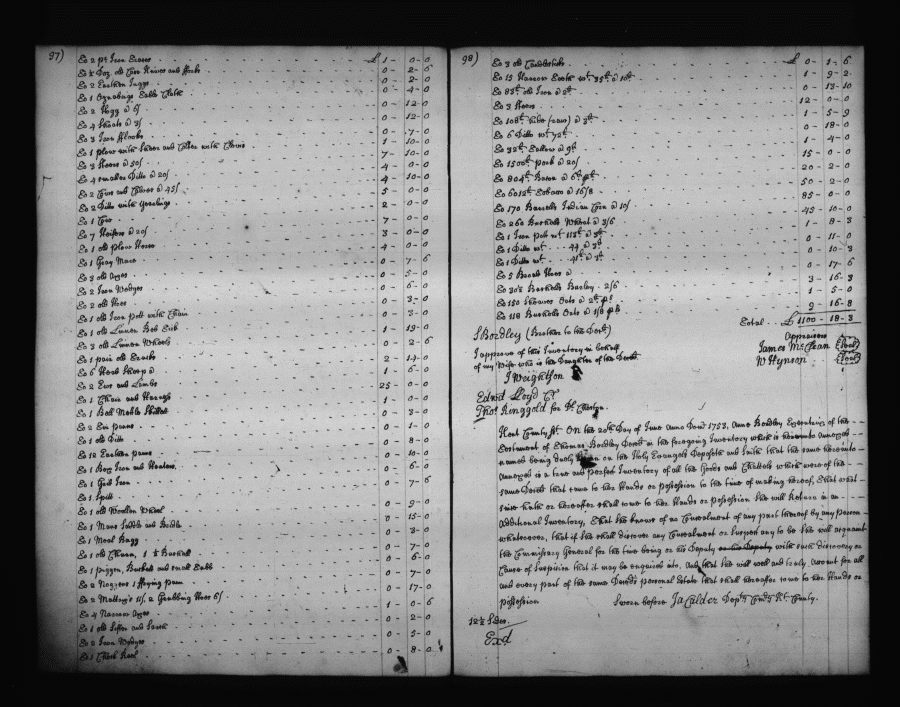 97)
To 2 pr Iron Traces £ 1 - 0 - 0
To ½ Doz old Case Knives and Forks 0 - 2 - 6
To 2 Earthen Juggs 0 - 2 - 0
To 1 Oznabrigs Table Cloth 0 - 4 - 0
To 2 Hogg @ 6/ 0 - 12 - 0
To 4 Shoats @ 3/ 0 - 12 - 0
To 3 Iron Hooks 0 - 7 - 0
To 1 plow with Share and Colter with Clevis 1 - 10 - 0
To 3 Steers @ 50/ 7 - 10 - 0
To 4 smaller Ditto @ 20/ 4 - 0 - 0
To 2 Cows and Calves @ 45/ 4 - 10 - 0
To 2 Ditto with Yearlings 5 - 0 - 0
To 1 Cow 2 - 0 - 0
To 7 Heifers @ 20/ 7 - 0 - 0
To 1 old plow Horse 3 - 0 - 0
To 1 Gray Mare 4 - 0 - 0
To 3 old Axes 0 - 7 - 6
To 2 Iron Wedges 0 - 5 - 0
To 2 old Hoes 0 - 6 - 0
To 1 old Iron pott with Chain 0 - 3 - 0
To 1 old Linnen Bed Tick 0 - 3 - 0
To 3 old Linnen Wheels 1 - 19 - 0
To 1 pair old Cards 0 - 2 - 6
To 6 Head Sheep @ 2 - 14 - 0
To 2 Ews and Lambs 1 - 6 - 0
To 1 Chair and Harness 25 - 0 - 0
To 1 Bell Mettle Skillet 1 - 0 - 0
To 2 Tin pans 0 - 3 - 0
To 1 old Ditto 0 - 1 - 0
To 12 Earthen pans 0 - 8 - 0
To 1 Box Iron and Heaters 0 - 10 - 0
To 1 Grid Iron 0 - 6 - 0
To 1 Spitt 0 - 7 - 6
To 1 old Woollen Wheel 0 - 9 - 0
To 1 Mans Saddle and Bridle 0 - 15 - 0
To 1 Meal Bagg 0 - 3 - 0
To 1 old Churn, 1 ½ Bushell 0 - 7 - 0
To 1 piggin, Bucket and small Tubb 0 - 6 - 0
To 2 Noggens 1 Frying pann 0 - 7 - 0
To 2 Mattocks 11/. 2 Grubbing Hoes 6/ 0 - 17 - 0
To 4 Narrow Axes 1 - 0 - 6
To 1 old Sifter and Search 0 - 2 - 0
To 2 Iron Wedges 0 - 5 - 0
To 1 Check Reel 0 - 8 - 0
98)
To 3 old Candlesticks £ 0 - 1 - 6
To 15 Harrow Teeth wt 35lb @ 10d 1 - 9 - 2
To 83lb old Iron @ 2d 0 - 13 - 10
To 3 Steers 12 - 0 - 0
To 108lb Tubs (raw) @ 3d 1 - 5 - 9
To 6 Ditto wt 72lb 0 - 18 - 0
To 32lb Tallow @ 9d 1 - 4 - 0
To 1500lb Pork @ 20/ 15 - 0 - 0
To 804lb Bacon @ 6d plb 20 - 2 - 0
To 6012lb Tobacco @ 16/8 50 - 2 - 0
To 170 Barrells Indian Corn @ 10/ 85 - 0 - 0
To 260 Bushells Wheat @ 3/6 45 - 10 - 0
To 1 Iron Pott wt 113lb @ 3d 1 - 8 - 3
To 1 Ditto wt 44 @ 3d 0 - 11 - 0
To 1 Ditto wt 41lb @ 3d 0 - 10 - 3
To 5 Broad Hoes @ 0 - 17 - 6
To 30½ Bushells Barley 2/6 3 - 16 - 3
To 150 Sheaves Oats @ 2d pr 1 - 5 - 0
To 118 Bushells Oats @ 1/8 pb 9 - 16 - 8
Total £ 1100 - 18 - 3
J Bordley (Brother to the Decd)
I approve of this Inventory in behalf
of my Wife who is the Daughter of the Decd
J Weightson
Edwd Lloyd Cr
Thos Ringgold for Dr Cheston
Appraisers
James McClean (Seal)
W Hynson (Seal)
Kent County Sct. On the 20th Day of June Anno Domi 1753, Ann Bordley Executrix of the
Testament of Thomas Bordley Decd in the foregoing Inventory which is hereunto annexed
named being duly Sworn on the Holy Evangels Deposeth and Saith that the same hereunto
Annexed is a true and perfect Inventory of all the Goods and Chattels which were of the
same Decd that came to her Hands or possession to the time of making hereof, That what
since hath or hereafter shall come to her Hands or possession she will Return in an
Additional Inventory, That she knows of no Concealment of any part thereof by any person
whatsoever, that if she shall discover any Concealment or Suspect any to be she will acquaint
the Commissary General for the time being or his Deputy or his Deputy with such discovery or
Cause of Suspicion that it may be enquired into, And that she will well and truly Account for all
and every part of the same Decds personal Estate that shall hereafter come to her Hands or
possession Sworn before Ja Calder Depty Comry Kt County.
12½ Sides
Exd